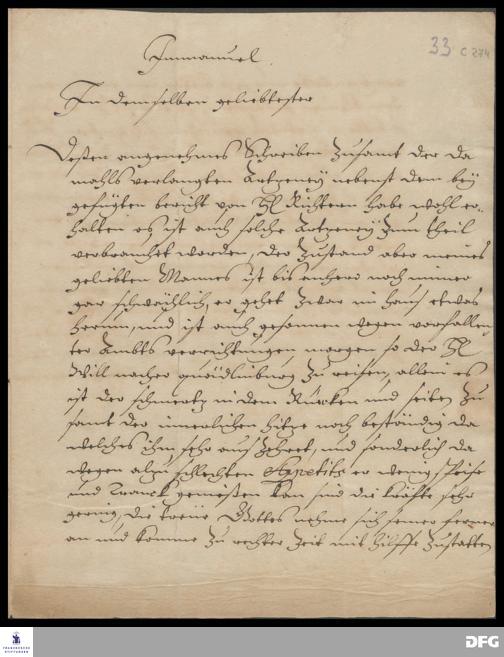 33 C 274
Immanuel.
In demselben geliebtester
Deßen angenehmes Schreiben zusamt der da
mahls verlangten Artzeney nebenst dem bey
gefügten bericht von H Richtern habe wohl er-
halten es ist auch solche Artzeney zum theil
verbrauchet worden, der Zustand aber meines
geliebten Mannes ist bis anhero noch immer
gar schwächlich, er gehet zwar im Haus etwas
herum, und ist auch gesonnen wegen vorfallen
ter Ambts verrichtungen morgen so der H
Will nacher quedlinburg zu reisen, allein es
ist der schmertz in dem Rücken und seiten zu
samt der innerlichen hitze noch beständig da
welches ihn sehr aus zehret, und sonderlich da
wegen alzu schlechten Appetits er wenig speise
und Tranck genießen kan sind die kräffte sehr
gering, die treue Gottes nehme sich seiner ferner
an und komme zu rechter Zeit mit hilffe zustatten
FRANCKESCHE STIFTUNGEN
DFG